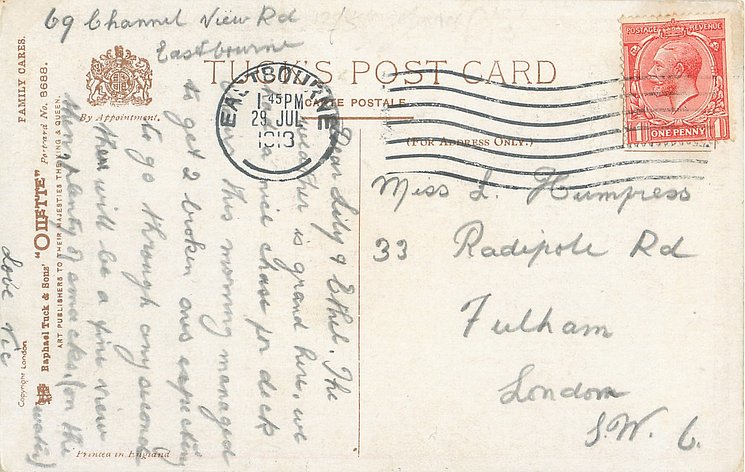 69 Channel View Rd
Eastbourne
TUCK'S POST CARD
CARTE POSTALE
(FOR ADDRESS ONLY.)
By Appointment.
EASTBOURNE
1 45 PM
29 JUL
1913
POSTAGE REVENUE
ONE PENNY
Dear Lily & Ethel. The
weather is grand here, we
had a nice chase for deck
chairs this morning managed
to get 2 broken ones expecting
to go through any second
there will be a fine view
then plenty of smacks, (on the
water)
Love Vic
Miss L. Humpress
33 Radipole Rd
Fulham
London
S.W. 6.
FAMILY CARES.
Raphael Tuck & Sons' "OILETTE" Postcard No. 8688.
ART PUBLISHERS TO THEIR MAJESTIES THE KING & QUEEN.
Copyright London
Printed in England